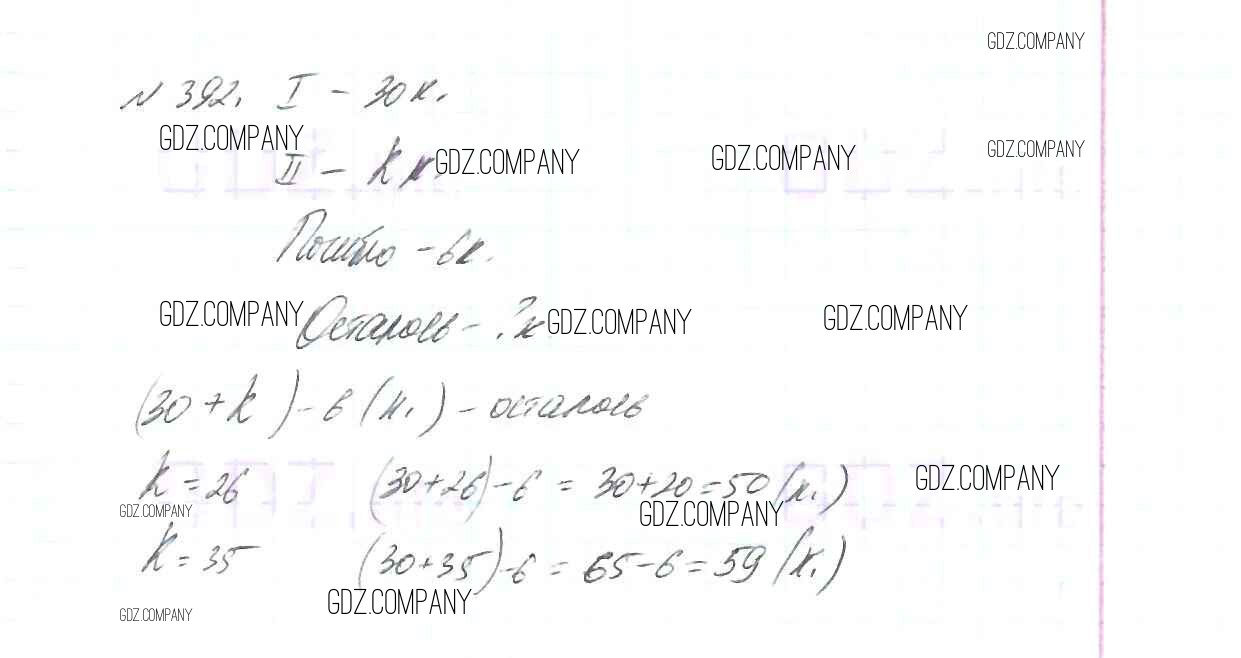 GDZ.COMPANY
№ 392. I – 30 к.
GDZ.COMPANY
GDZ.COMPANY
II – k к.
GDZ.COMPANY
GDZ.COMPANY
Погибло – 6 к.
GDZ.COMPANY
Осталось – ? к.
GDZ.COMPANY
GDZ.COMPANY
(30 + k) – 6 (к.) – осталось
k = 26 (30 + 26) – 6 = 30 + 20 = 50 (к.)
GDZ.COMPANY
GDZ.COMPANY
GDZ.COMPANY
k = 35 (30 + 35) – 6 = 65 – 6 = 59 (к.)
GDZ.COMPANY
GDZ.COMPANY